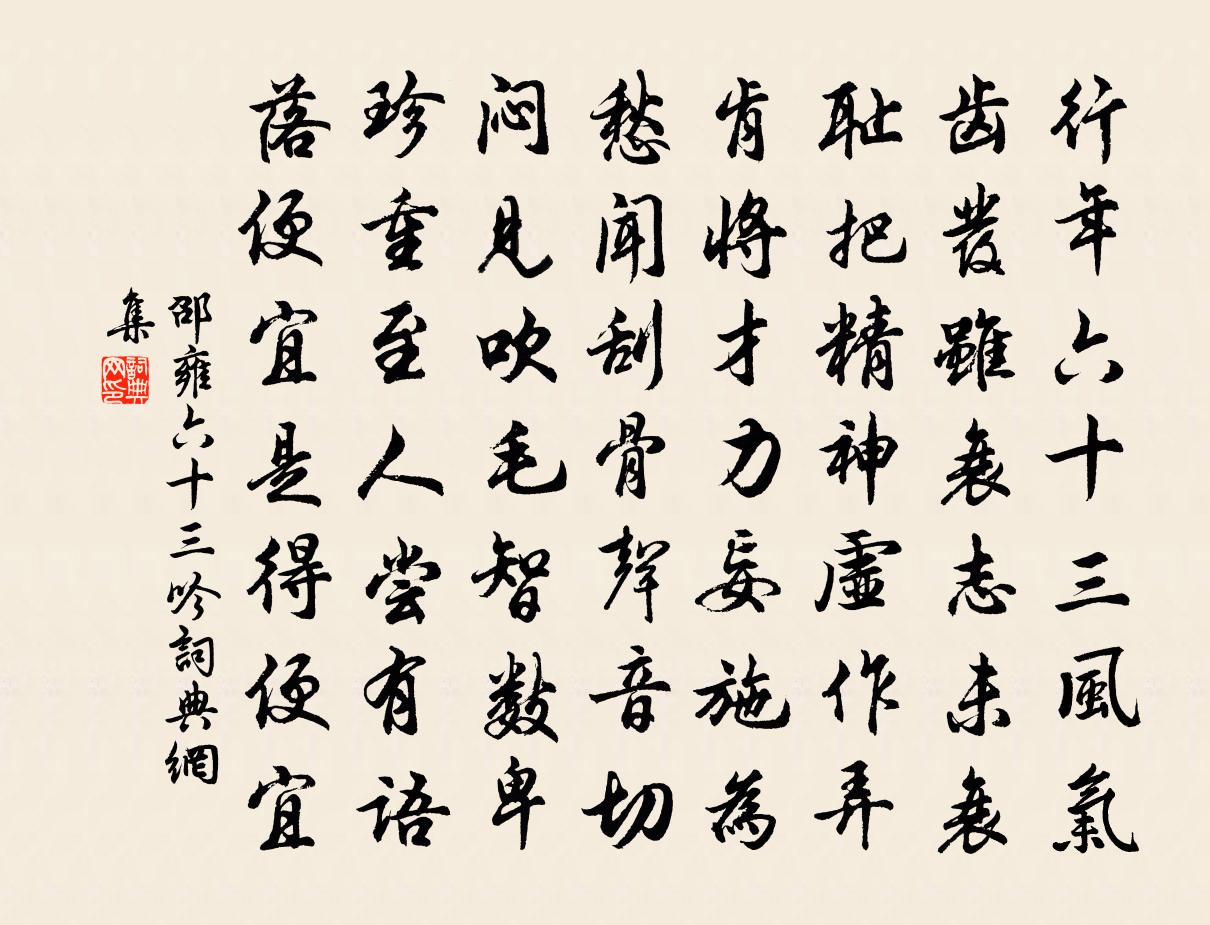 行年六十三風氣
齿發雖衰志未衰
耻把精神虛作弄
肯將才力妄施為
愁聞刮骨聲音切
闷見吹毛智數卑
珍重至人尝有語
落便宜是得便宜
邵雍六十三吟詞典網
集
詞典网印